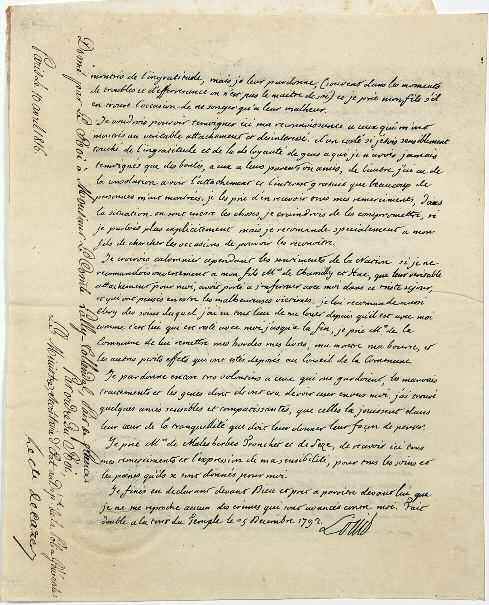 montrés de l'ingratitude, mais je leur pardonne, (souvent dans les moments
de troubles et d'effervescence on n'est pas le maitre de soi) et je prie mon fils s'il
en trouve l'occasion de ne songer qu'a leur malheur.
Je voudrois pouvoir temoigner ici ma reconnoissance a ceux qui m'ont
montrés un veritable attachement et desinteressé. d'un coté si j'etois sensiblement
touché de l'ingratitude et de la deloyauté de gens a qui je n'avois jamais
temoignés que des bontés, a eux a leurs parents ou amis, de l'autre j'ai eu de
la consolation a voir l'attachement et l'interet gratuit que beaucoup de
personnes m'ont montrés, je les prie d'en recevoir tous mes remerciments, dans
la situation ou sont encore les choses, je craindrois de les compromettre, si
je parlois plus explicitement mais je recomande specialement a mon
fils de chercher les occasions de pouvoir les reconnoitre.
Je croirois calomnier cependant les sentiments de la Nation si je ne
recommandois ouvertement a mon fils Mrs de Chamilly et Hue, que leur veritable
attachement pour moi, avoit porté a s'enfermer avec moi dans ce triste sejour,
et qui ont pensés en etre les malheureuses victimes. je lui recommande aussi
Clery des soins duquel j'ai eu tout lieu de me louer depuis qu'il est avec moi
comme c'est lui qui est resté avec moi jusqu'a la fin, je prie Mrs de la
Commune de lui remettre mes hardes mes livres, ma montre ma bourse, et
les autres petits effets qui ont etés deposés au Conseil de la Commune.
Je pardonne encore tres volontiers a ceux qui me gardoient, les mauvais
traitements et les gesnes dont ils ont cru devoir user envers moi. j'ai trouvé
quelques ames sensibles et compatissantes, que celles la jouissent dans
leur cœur de la tranquillité que doit leur donner leur façon de penser.
Je prie Mrs de Malesherbes Tronchet et de Seze, de recevoir ici tous
mes remerciments et l'expression de ma sensibilité, pour tous les soins et
les peines qu'ils se sont donnés pour moi.
Je finis en declarant devant Dieu et pret a paroitre devant lui que
je ne me reproche aucun des crimes qui sont avancés contre moi. Fait
double a la tour du Temple le 25 Decembre 1792.
Louis
Donné par Le Roi à Monsieur Le Comte Lally-Tollendal, Pair de France
Paris le 10 avril 1816.
Par ordre du Roi
Le Ministre secrétaire d'Etat
Le cte Decazes